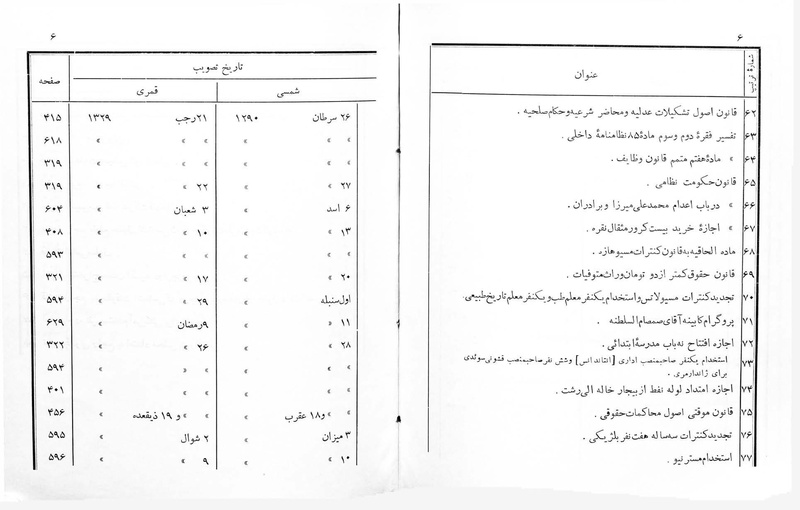 ۶
شمارهٔ ترتیب
عنوان
۶۲ قانون اصول تشکیلات عدلیه ومحاضر شرعیه وحکام صلحیه .
۶۳ تفسیر فقرهٔ دوم وسوم مادهٔ ۸۵ نظامنامهٔ داخلی .
۶۴ » مادهٔ هفتم متمم قانون وظایف .
۶۵ قانون حکومت نظامی .
۶۶ » درباب اعدام محمدعلی میرزا وبرادران .
۶۷ » اجازهٔ خرید بیست کرور مثقال نقره .
۶۸ ماده الحاقیه به قانون کنترات مسیوهازه .
۶۹ قانون حقوق کمتر ازدو تومان وراث متوفیات .
۷۰ تجدید کنترات مسیولاتس واستخدام یکنفر معلم طب و یکنفر معلم تاریخ طبیعی.
۷۱ پروگرام کابینه آقای صمصام السلطنه .
۷۲ اجازه افتتاح نه باب مدرسهٔ ابتدائی .
۷۳ استخدام یکنفر صاحبمنصب اداری [انتاندانس] وشش نفر صاحبمنصب قشونی سوئدی
برای ژاندارمری .
۷۴ اجازه امتداد لوله نفط از بیجار خاله الی رشت .
۷۵ قانون موقتی اصول محاکمات حقوقی .
۷۶ تجدید کنترات سه ساله هفت نفر بلژیکی .
۷۷ استخدام مسترنیو .
۶
تاریخ تصویب
صفحه
شمسی
قمری
۲۶ سرطان ۱۲۹۰ ۲۱رجب ۱۳۲۹ ۴۱۵
» » » » » » ۶۱۸
» » » » » » ۳۱۹
۲۷ » » ۲۲ » » ۳۱۹
۶ اسد » ۳ شعبان » ۶۰۴
۱۳ » » ۱۰ » » ۴۰۸
» » » » » » ۵۹۳
۲۰ » » ۱۷ » » ۳۲۱
اول سنبله » ۲۹ » » ۵۹۴
۱۱ » » ۹رمضان » ۶۲۹
۲۸ » » ۲۶ » » ۳۲۲
» » » » » » ۵۹۴
» » » » » » ۴۰۱
» » و۱۸ عقرب » » » و ۱۹ ذیقعده » ۴۵۶
۳ میزان » ۲ شوال » ۵۹۵
۱۰ » » ۹ » » ۵۹۶